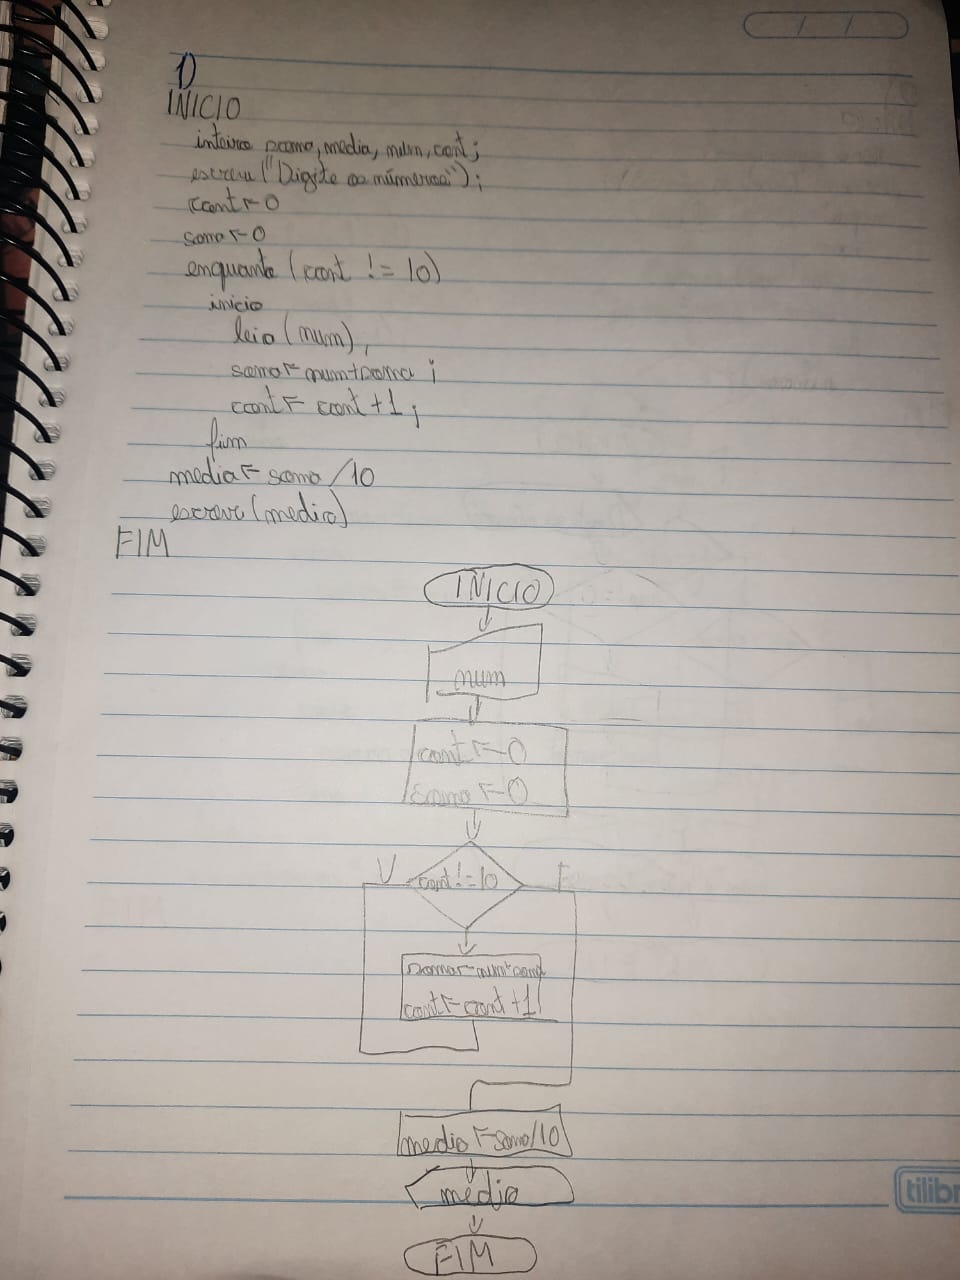 / /
1)
INICIO
inteiro soma, media, num, cont;
escreva ("Digite os números");
cont ← 0
soma ← 0
enquanto (cont != 10)
inicio
leia (num),
soma ← num+soma ;
cont ← cont +1;
fim
media ← soma /10
escreva (media)
FIM
INICIO
num
cont ← 0
soma ← 0
V cont != 10 F
soma ← num+soma
cont ← cont +1
media ← soma/10
media
FIM
tilibr